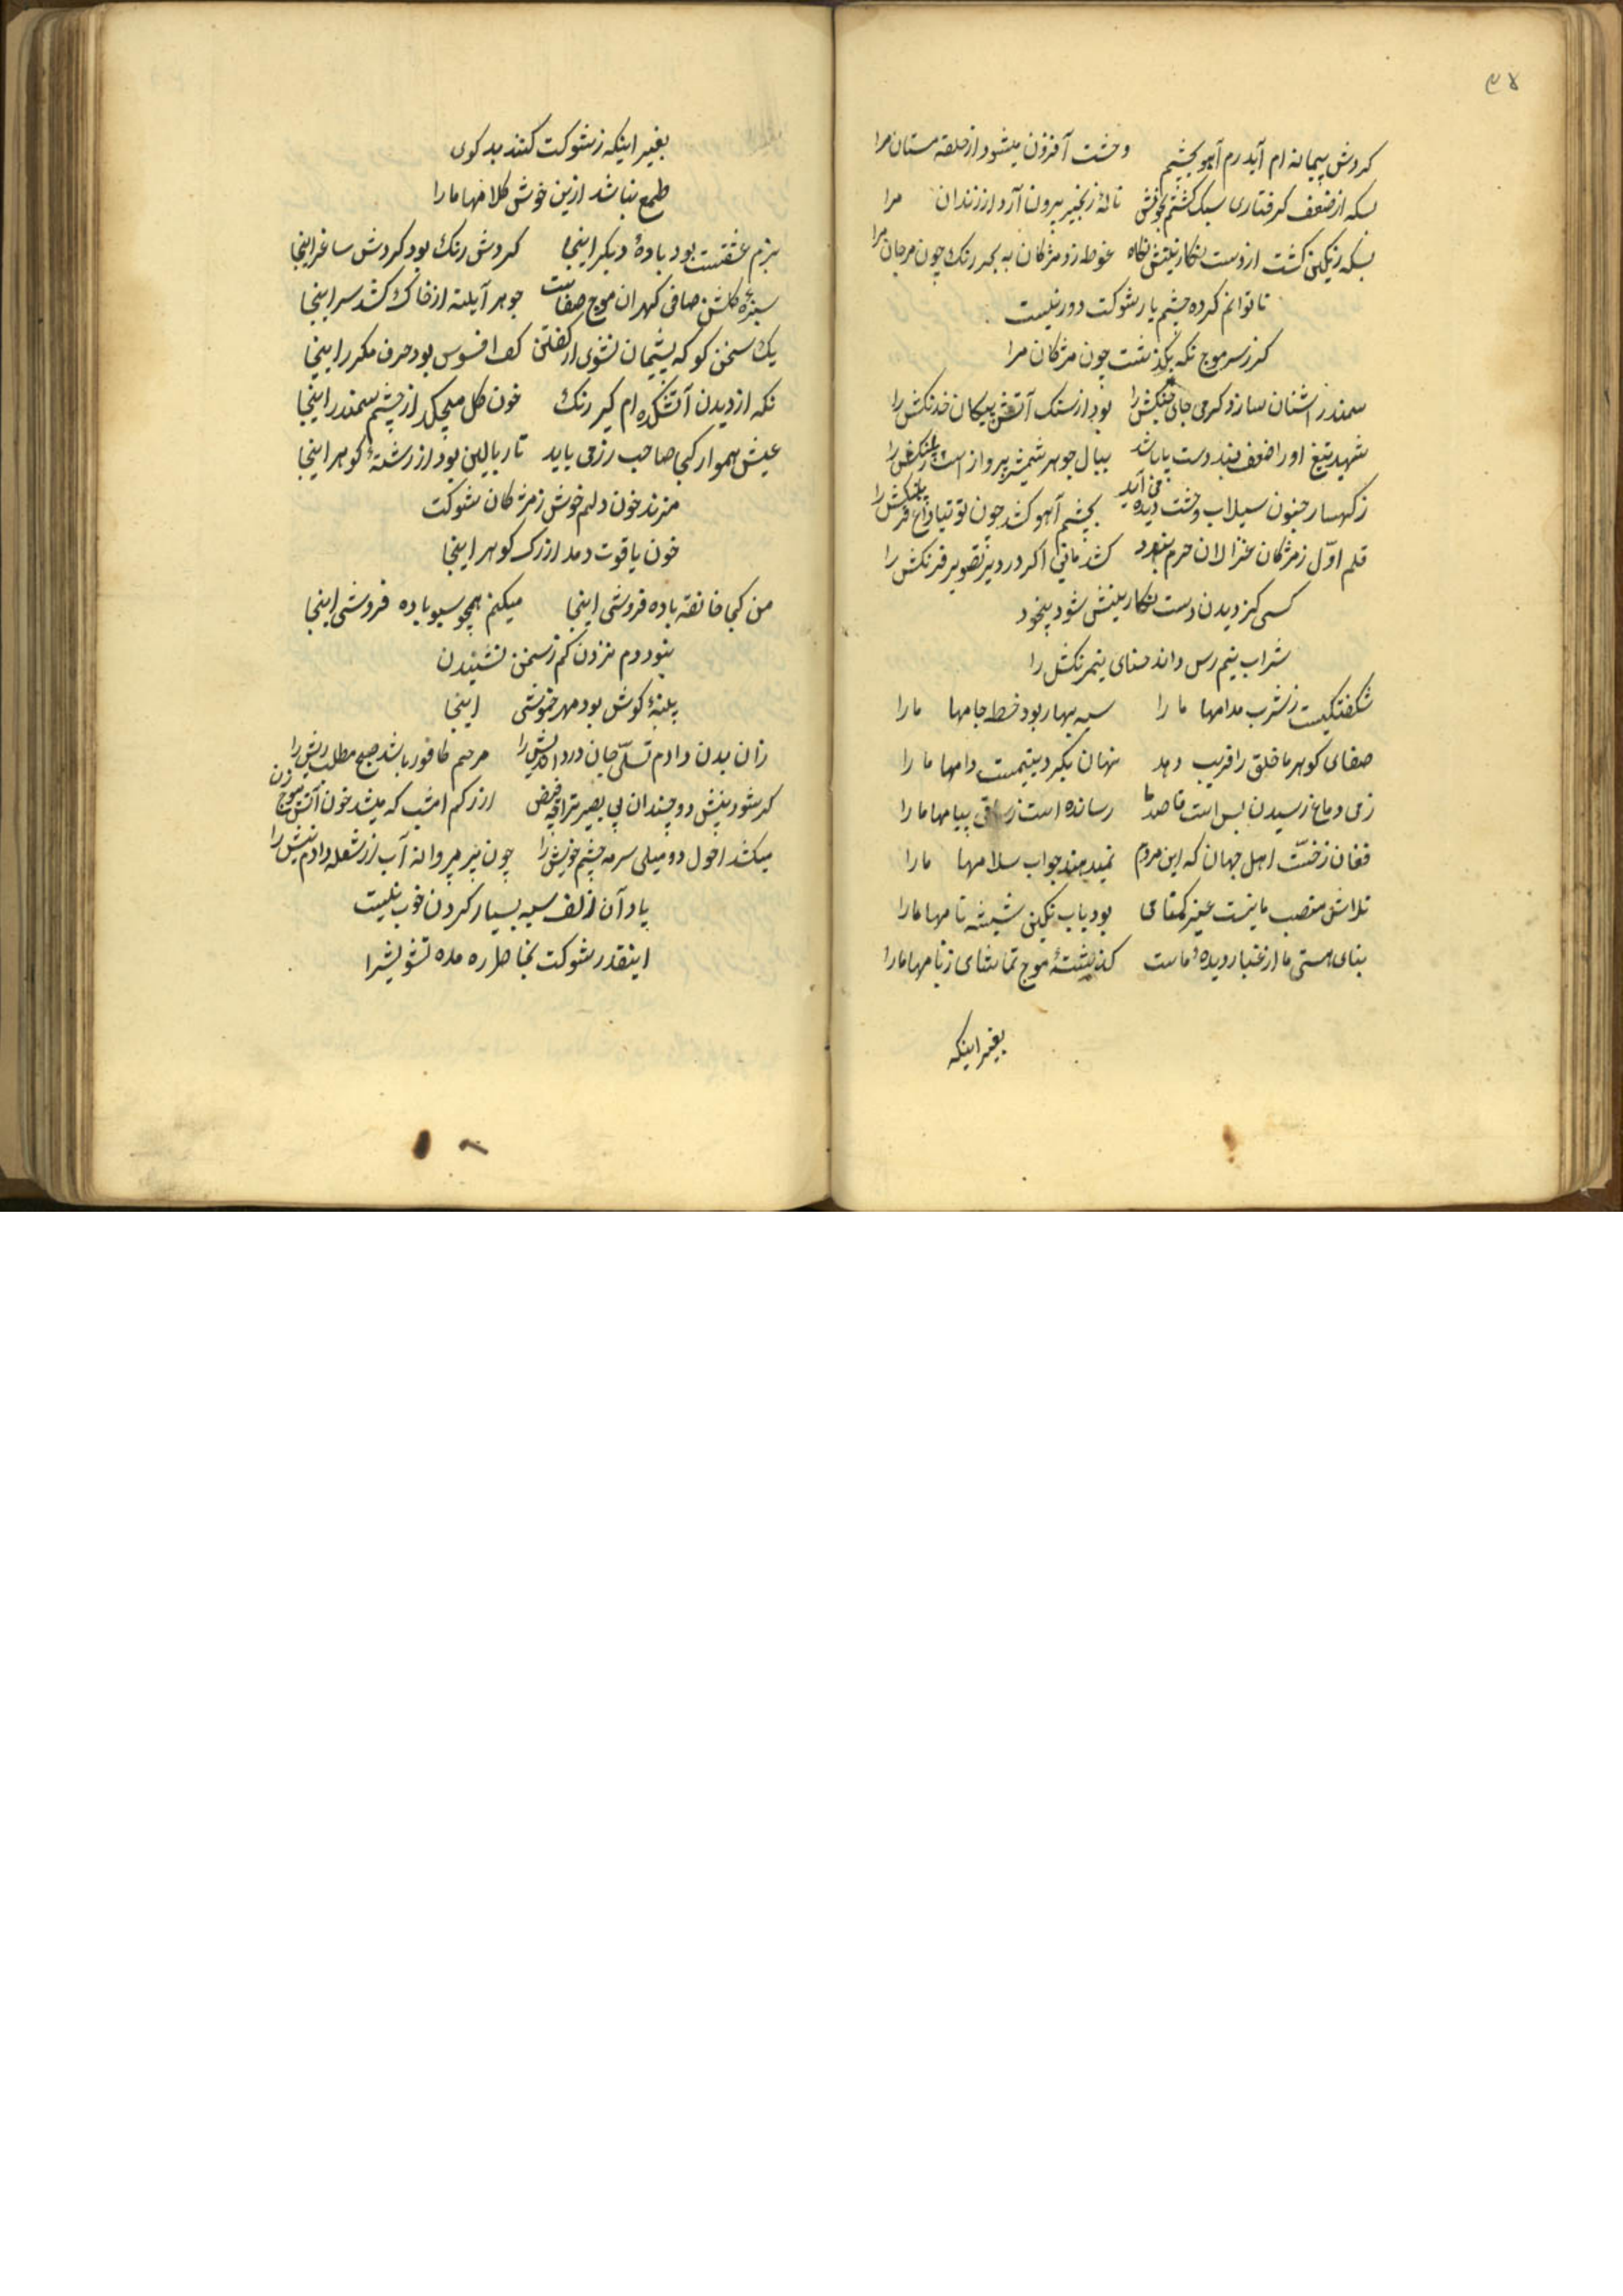 ۳۸
کردش پیمانه ام آید رم آهو بچشم وحشت آفزون میشود از حلقه مستان مرا
بسکه از ضعف کرفتاری سبک کشتم بخونش نالهٔ زنجیر بیرون آرد از زندان مرا
بسکه رنکین کشت از دست نکارینش نکاه غوطه زد مژکان به بحر رنک چون مرجان مرا
ناتوانم کرده چشم یار شوکت دور نیست
کز سر موج نکه بکذشت چون مژکان مرا
سمندر آشنان سازد کرمی جای خدنکش را بود از سنک آتش پیکان خدنکش را
شهید تیغ او را ضعف بند دست پا باشد ببال جوهر شمشیر پرواز است رنکش را
ز کهسار جنون سیلاب وحشت دیده می آید بچشم آهو کشد چون توتیا داغ پلنکش را
قلم اوّل ز مژکان غزالان حرم بندد کشد مانی اکر در دیر تصویر فرنکش را
کسی کز دیدن دست نکارینش شود بیخود
شراب نیم رس داند حنای نیمرنکش را
شکفتکیست ز شرب مدامها ما را سیه بهار بود خط جامها ما را
صفای کوهر ما خلق را فریب دهد نهان بکرد یتیمیست دامها ما را
ز می دماغ رسیدن بس است قاصد ما رسانده است ز ساقی پیامها ما را
فغان ز خسّت اهل جهان که این مردم نمیدهند جواب سلامها ما را
تلاش منصب ما نیست غیر کمنامی بود بباب نکین شیشه نامها ما را
بنای هستی ما از غبار دیدهٔ ماست کذشتهٔ موج تماشای زبامها ما را
بغیر اینکه
بغیر اینکه ز شوکت کنند بد کوی
طمع نباشد ازین خوش کلامها ما را
بزم عشقست بود بادهٔ دیکر اینجا کردش رنک بود کردش ساغر اینجا
سبزهٔ کلشن صافی کهران موج صفاست جوهر آیینه از خاک کشد سر اینجا
یک سخن کو که پشیمان نشوی از کفتن کف افسوس بود حرف مکرر اینجا
نکه از دیدن آتشکده ام کیر رنک خون کل میچکد از چشم سمندر اینجا
عیش هموار کجا صاحب رزمی باید تار بالین بود از رشتهٔ کوهر اینجا
میزند خون دلم خوش ز مژکان شوکت
خون یاقوت دمد از رک کوهر اینجا
من کجا خانقه باده فروشی اینجا میکنم همچو سبو باده فروشی اینجا
نبود دم نزدن کم ز سخن نشنیدن
پنبهٔ کوش بود مهر خموشی اینجا
زان بدن دادم تسلّی جان درد اندیش را مرهم کافور باشد صبح مطلب ریش را
کر شود بینش دو چندان بی بصیر ترا چه فیض از رکم امشب که میشد خون آتش موج زن
میکشد احول دو میلی سرمه چشم خویش را چون پر پروانه آب از شعله دادم نیش را
یاد آن زلف سیه بسیار کردن خوب نیست
اینقدر شوکت بخاطر ره مده تشویشرا